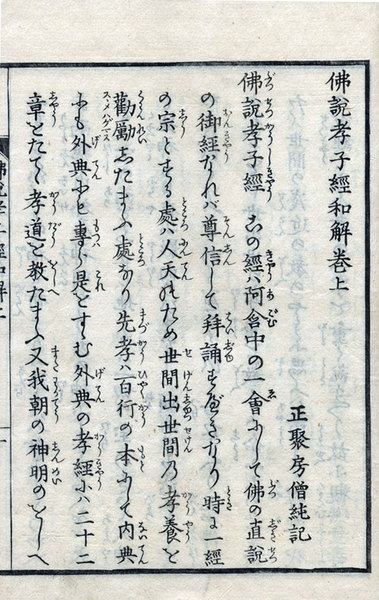 佛說孝子經和解巻上
正聚房僧純記
佛說孝子經 この經ハ阿含中の一會にして佛の直說
の御經なれバ尊信して拜誦すべきなり 時に一經
の宗とする處ハ人天のため世間出世間乃孝養を
勸勵したまふ處なり 先孝ハ百行の本にして内典
にも外典にも專ら是をすゝむ外典の孝經にハ二十二
章をたてゝ孝道を教たまふ又我朝の神明のをしへ